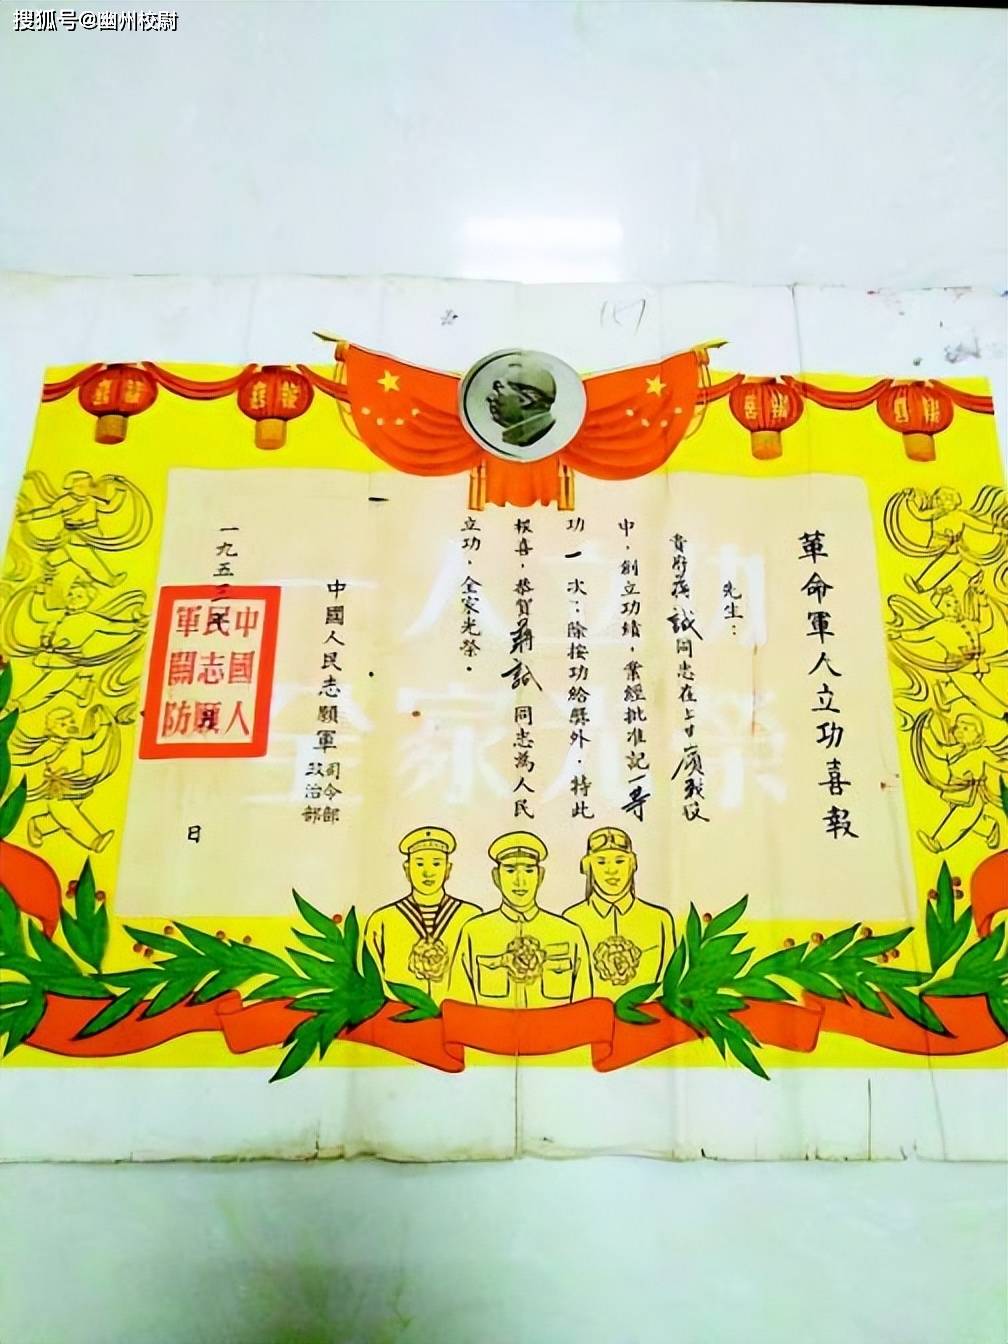 搜狐号@幽州校尉
革命軍人立功喜報
先生：
貴府蔣誠同志在上甘战役
中，創立功績，業經批准記一等
功一次；除按功給獎外，特此
報喜，恭賀蔣誠同志為人民
立功，全家光榮。
一人立功
全家光榮
中國人民志願軍
司令部
政治部
一九五三年月日
中國人民志願軍關防